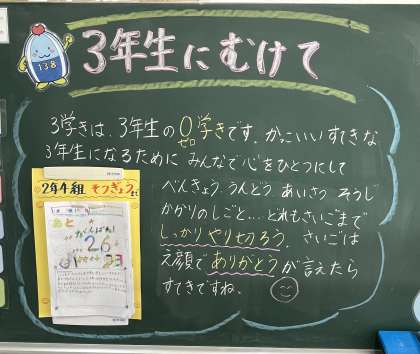 138
3年生にむけて
3学きは、3年生の0学きです。かっこいい!すてきな
ゼロ
3年生になるために みんなで心をひとつにして
べんきょう うんどう あいさつ そうじ
かかりのしごと…どれもさいごまで
しっかりやり切ろう。さいごは
え顔でありがとうが言えたら
すてきですね。
2年4組 そつぎょうまで
あと
がんばれ!
26